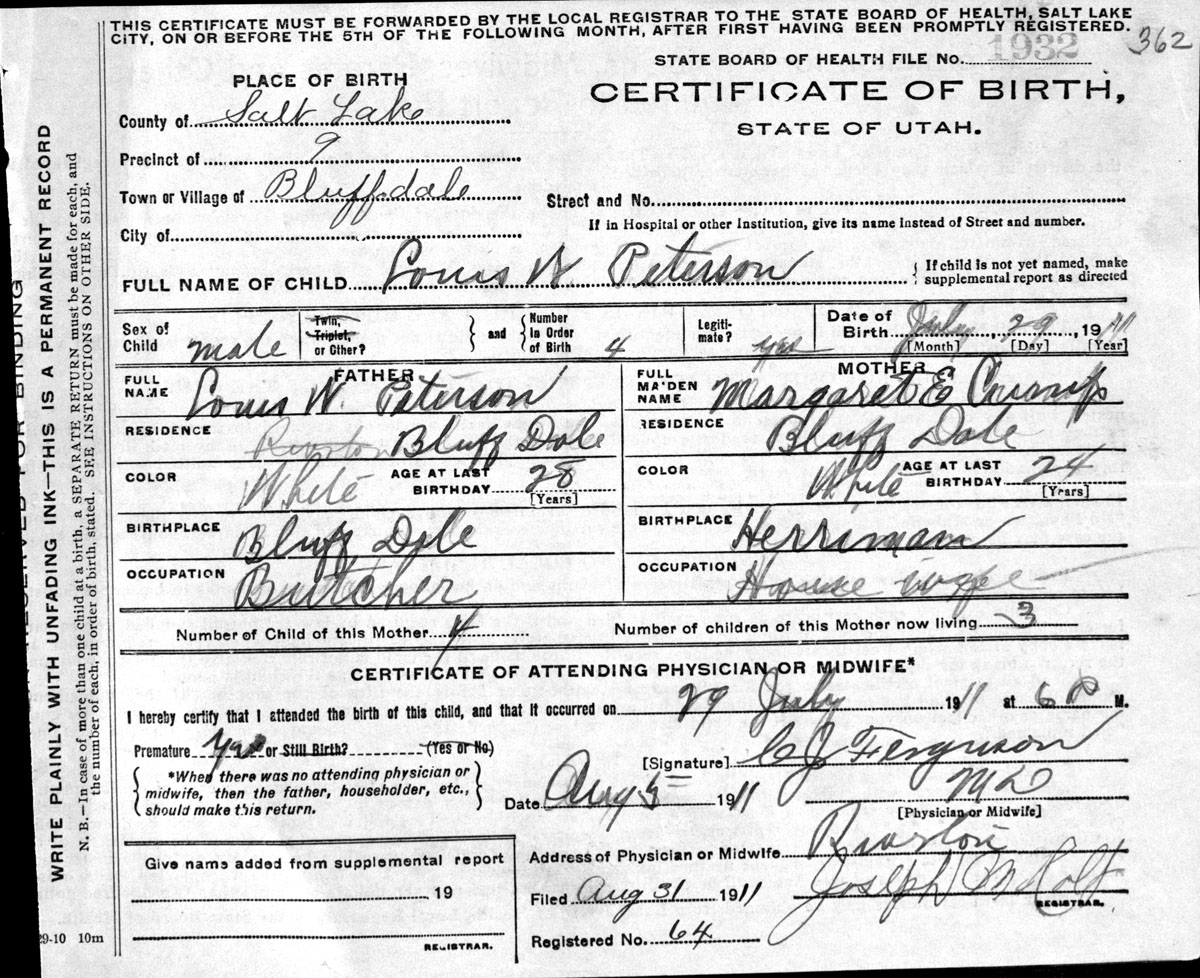 THIS CERTIFICATE MUST BE FORWARDED BY THE LOCAL REGISTRAR TO THE STATE BOARD OF HEALTH, SALT LAKE
CITY, ON OR BEFORE THE 5TH OF THE FOLLOWING MONTH, AFTER FIRST HAVING BEEN PROMPTLY REGISTERED.
362
STATE BOARD OF HEALTH FILE No. 1932
PLACE OF BIRTH
CERTIFICATE OF BIRTH,
STATE OF UTAH.
County of Salt Lake
Precinct of 9
Town or Village of Bluffdale
Street and No.
City of
If in Hospital or other Institution, give its name Instead of Street and number.
FULL NAME OF CHILD Louis W. Peterson
If child is not yet named, make
supplemental report as directed
Sex of Child male
Twin, Triplet, or Other?
and
Number in Order of Birth 4
Legiti-mate? yes
Date of Birth July 29, 1911
[Month] [Day] [Year]
FATHER
FULL NAME Louis W. Peterson
RESIDENCE Riverton Bluff Dale
COLOR White
AGE AT LAST BIRTHDAY 28
[Years]
BIRTHPLACE Bluff Dale
OCCUPATION Butcher
MOTHER
FULL MAIDEN NAME Margaret E Crump
RESIDENCE Bluff Dale
COLOR White
AGE AT LAST BIRTHDAY 24
[Years]
BIRTHPLACE Herriman
OCCUPATION House wife
Number of Child of this Mother 4
Number of children of this Mother now living 3
CERTIFICATE OF ATTENDING PHYSICIAN OR MIDWIFE*
I hereby certify that I attended the birth of this child, and that it occurred on 29 July 1911 at 6 P M.
Premature Yes or Still Birth? (Yes or No)
*When there was no attending physician or
midwife, then the father, householder, etc.,
should make this return.
[Signature] C J Ferguson
M D
[Physician or Midwife]
Date Aug 5 1911
Address of Physician or Midwife Riverton
Give name added from supplemental report
19
REGISTRAR.
Filed Aug 31 1911
Joseph M Holt
REGISTRAR.
Registered No. 64
29-10 10m
RESERVED FOR BINDING
WRITE PLAINLY WITH UNFADING INK—THIS IS A PERMANENT RECORD
N. B.—In case of more than one child at a birth, a SEPARATE RETURN must be made for each, and
the number of each, in order of birth, stated. SEE INSTRUCTIONS ON OTHER SIDE.